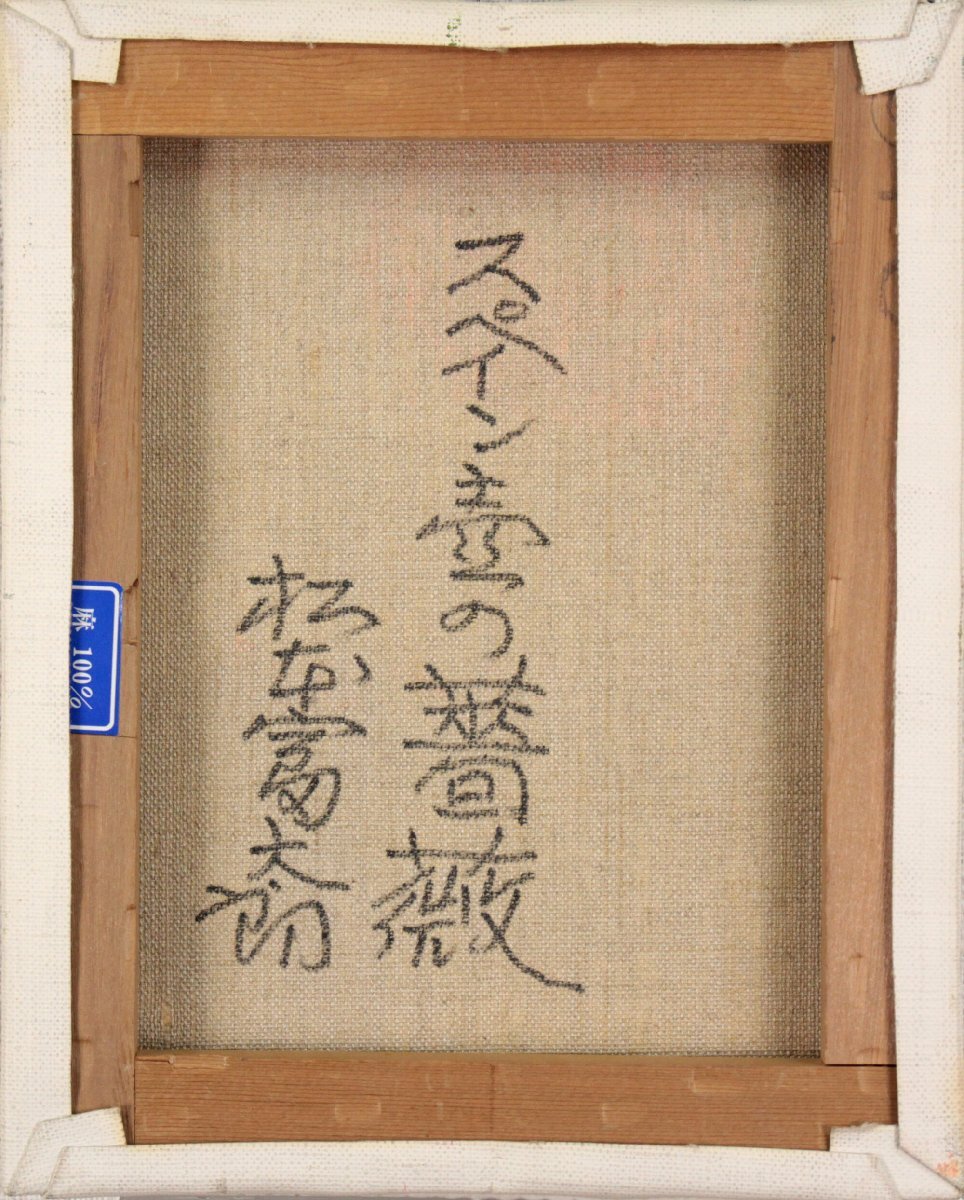 スペイン壺の薔薇
松本富太郎
麻 100%